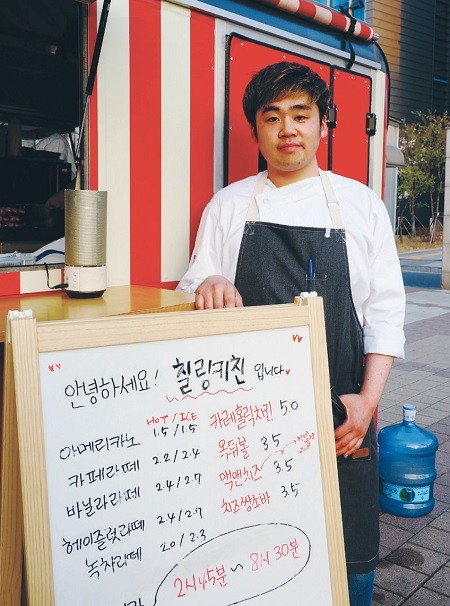 안녕하세요! 칠링키친 입니다
HOT / ICE
아메리카노 1.5 / 1.5
카페라떼 2.2 / 2.4
바닐라라떼 2.4 / 2.7
헤이즐럿라떼 2.4 / 2.7
녹차라떼 2.0 / 2.3
카레홀릭치킨 5.0
옥듀볼 3.5
맥앤치즈 3.5
치즈쌍소바 3.5
2시45분 ~ 8시30분